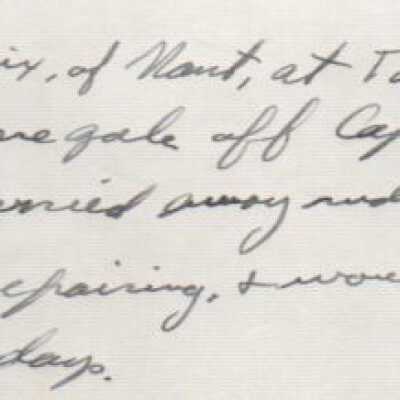 ix, of Nant, at To
re gale off Cap
arried away rud
epairing, & wou
days.